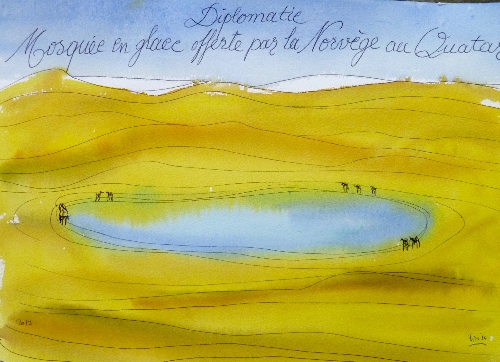 Diplomatie
Mosquée en glace offerte par la Norvège au Quatar